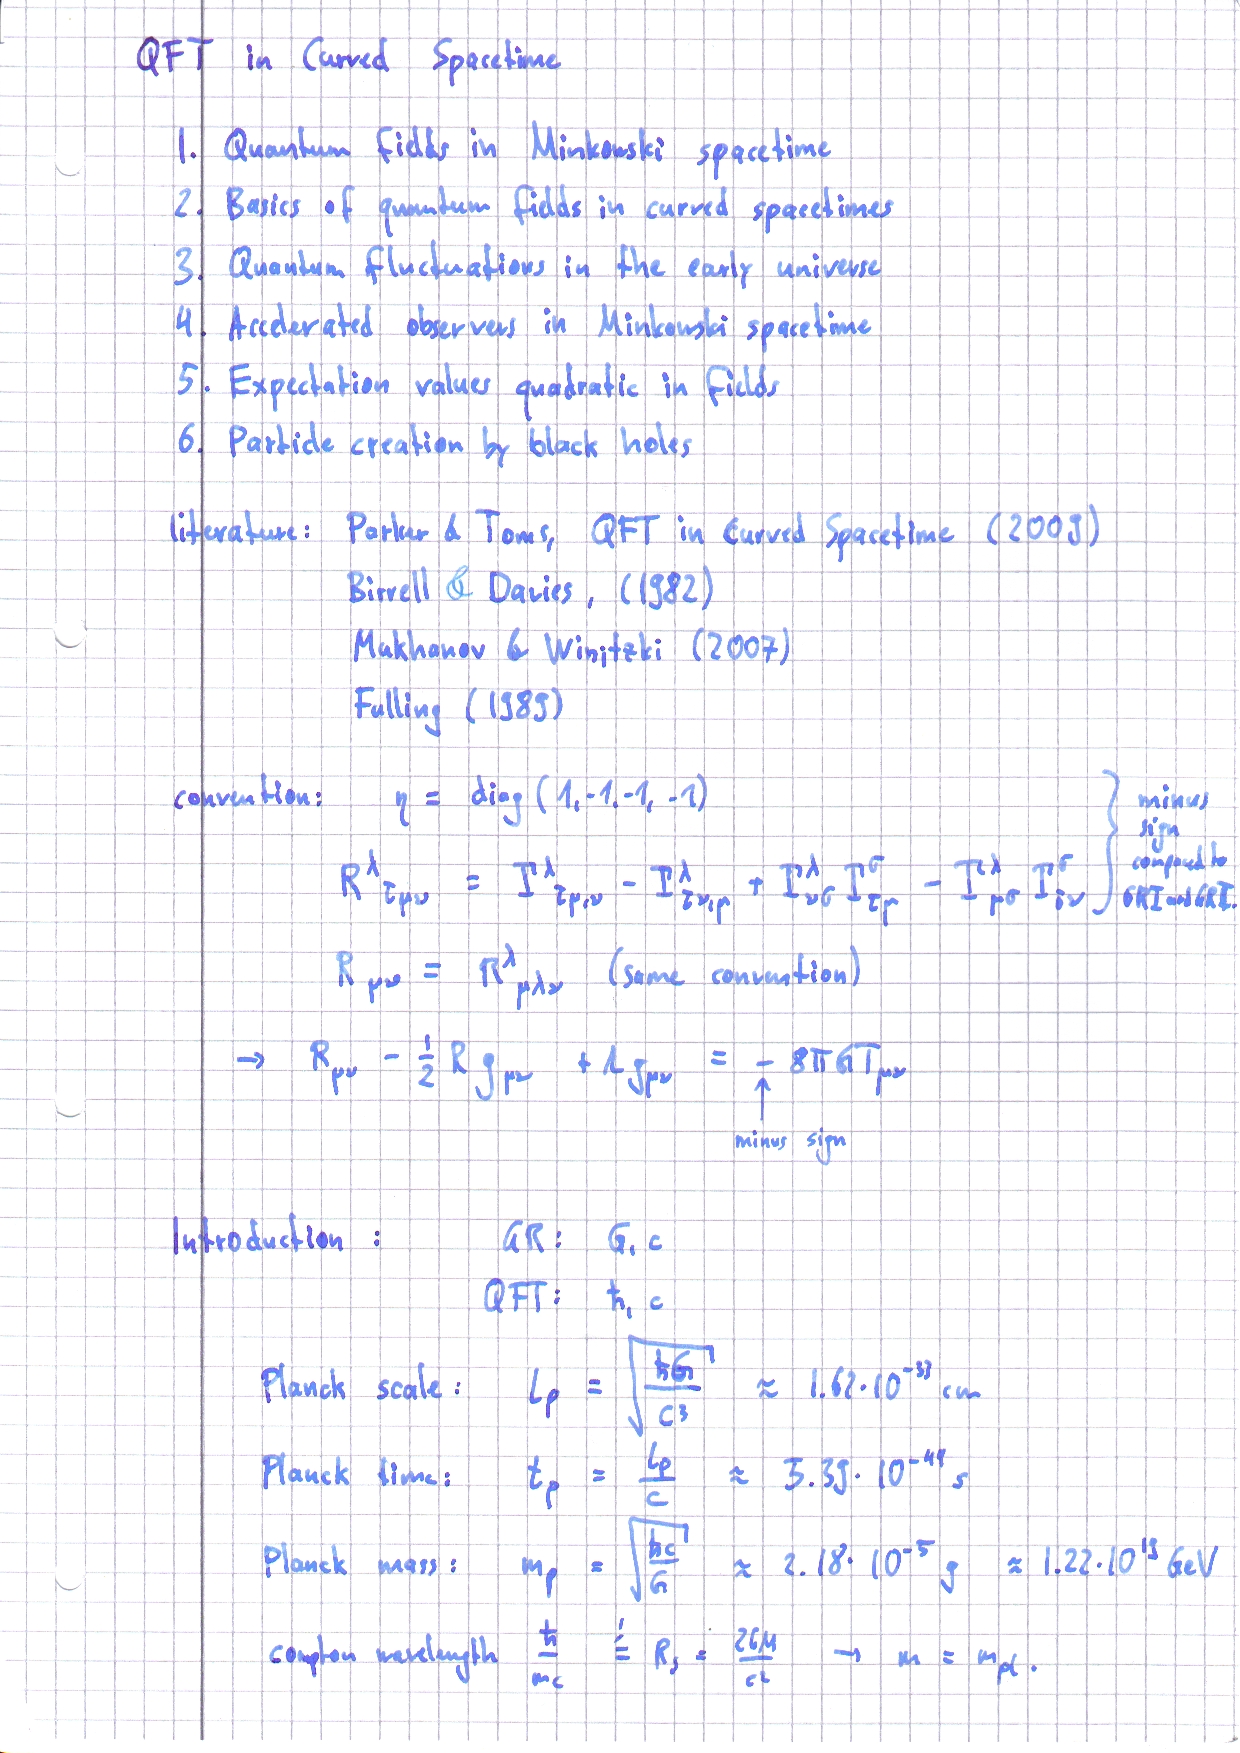 QFT in Curved Spacetime
1. Quantum fields in Minkowski spacetime
2. Basics of quantum fields in curved spacetimes
3. Quantum fluctuations in the early universe
4. Accelerated observers in Minkowski spacetime
5. Expectation values quadratic in fields
6. Particle creation by black holes
literature: Parker & Toms, QFT in Curved Spacetime (2009)
Birrell & Davies, (1982)
Mukhanov & Winitzki (2007)
Fulling (1989)
convention: η = diag (1,-1,-1,-1)
R^λ_τμν = Γ^λ_τμ,ν - Γ^λ_τν,μ + Γ^λ_νσ Γ^σ_τμ - Γ^λ_μσ Γ^σ_τν } minus sign compared to GRI and GRII.
R_μν = R^λ_μλν (same convention)
→ R_μν - 1/2 R g_μν + Λ g_μν = - 8πG T_μν
↑
minus sign
Introduction : GR: G, c
QFT: ħ, c
Planck scale: L_p = √(ħG/c³) ≈ 1.62·10^-33 cm
Planck time: t_p = L_p/c ≈ 5.39·10^-44 s
Planck mass: m_p = √(ħc/G) ≈ 2.18·10^-5 g ≈ 1.22·10^19 GeV
compton wavelength ħ/mc =! R_s = 2GM/c² → m = m_pl.